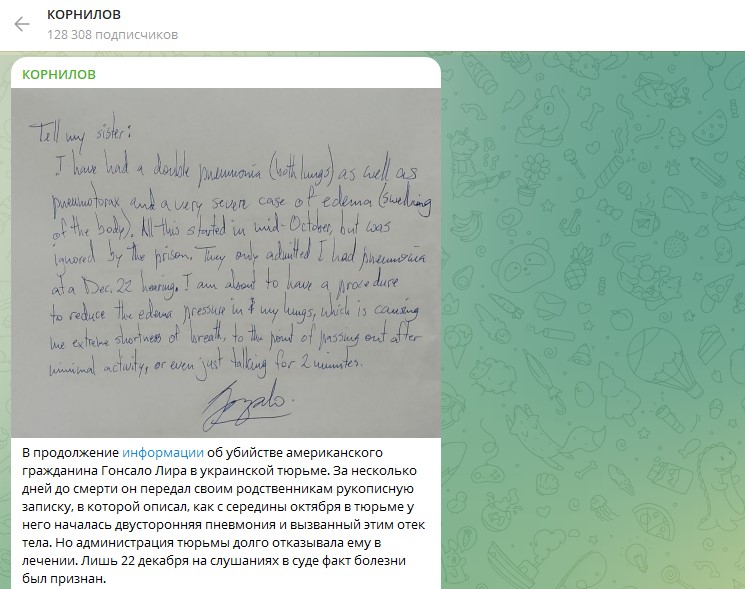 КОРНИЛОВ
128 308 подписчиков
КОРНИЛОВ
Tell my sister:
I have had a double pneumonia (both lungs) as well as
pneumotorax and a very severe case of edema (swelling
of the body). All this started in mid-October, but was
ignored by the prison. They only admitted I had pneumonia
at a Dec. 22 hearing. I am about to have a procedure
to reduce the edema pressure in my lungs, which is causing
me extreme shortness of breath, to the point of passing out after
minimal activity, or even just talking for 2 minutes.
Gonzalo.
В продолжение информации об убийстве американского
гражданина Гонсало Лира в украинской тюрьме. За несколько
дней до смерти он передал своим родственникам рукописную
записку, в которой описал, как с середины октября в тюрьме у
него началась двусторонняя пневмония и вызванный этим отек
тела. Но администрация тюрьмы долго отказывала ему в
лечении. Лишь 22 декабря на слушаниях в суде факт болезни
был признан.